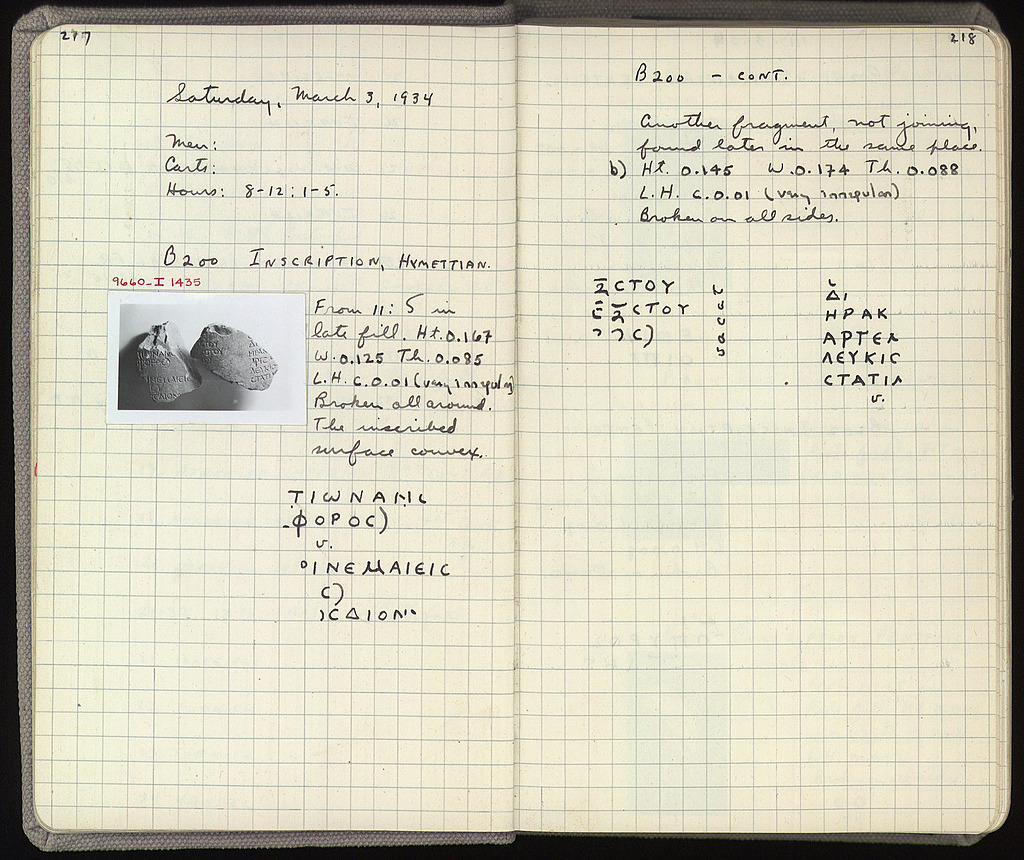 217
Saturday, March 3, 1934
Men:
Carts:
Hours: 8-12: 1-5.
B200 INSCRIPTION, HYMETTIAN.
9660-I 1435
From 11: 5 in
late fill. Ht. 0.167
W. 0.125 Th. 0.085
L.H. c. 0.01 (very irregular)
Broken all around.
The inscribed
surface convex.
ΤΙωΝΑΙ
ΦΟΡΟC)
v.
ΙΝΕΜΑΙΕΙC
C)
CΔΙΟΝ
218
B200 - CONT.
Another fragment, not joining,
found later in the same place.
b) Ht. 0.145 W. 0.174 Th. 0.088
L.H. c. 0.01 (very irregular)
Broken on all sides.
ΞCΤΟΥ
ΞCΤΟΥ
C)
ΔΙ
ΗΡΑΚ
ΑΡΤΕΛ
ΛΕΥΚΙC
CΤΑΤΙΛ
v.